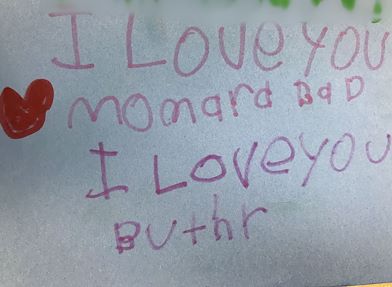 I Love you
momard BaD
I Loveyou
Buthr